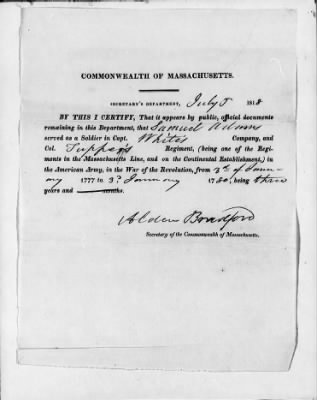 COMMONWEALTH OF MASSACHUSETTS.
SECRETARY'S DEPARTMENT, July 8 1818
BY THIS I CERTIFY, That it appears by public, official documents
remaining in this Department, that Samuel Adams
served as a Soldier in Capt. Whites Company, and
Col. Tuppers Regiment, (being one of the Regi-
ments in the Massachusetts Line, and on the Continental Establishment,) in
the American Army, in the War of the Revolution, from 3d of Janu-
ary 1777 to 3d January 1780, being three
years and months.
Alden Bradford
Secretary of the Commonwealth of Massachusetts.